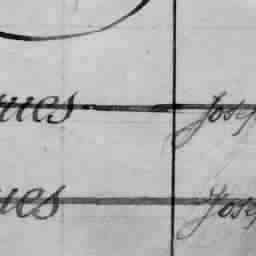 ues Josep
ues Josep